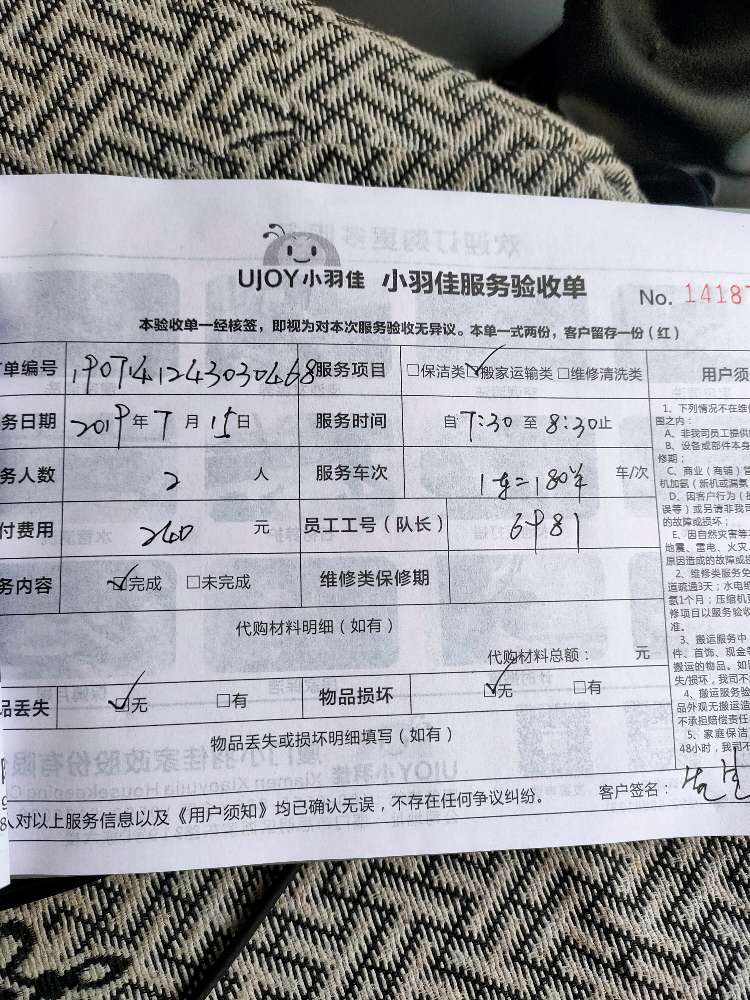 UJOY小羽佳 小羽佳服务验收单 No. 14187
本验收单一经核签，即视为对本次服务验收无异议。本单一式两份，客户留存一份（红）
单编号 1907141243030468 服务项目 □保洁类 ☑搬家运输类 □维修清洗类 用户须
务日期 2019年7月15日 服务时间 自7:30至8:30止
务人数 2 人 服务车次 车/次
付费用 240 元 员工工号（队长） 6981
务内容 ☑完成 □未完成 维修类保修期
代购材料明细（如有）
代购材料总额： 元
品丢失 ☑无 □有 物品损坏 ☑无 □有
物品丢失或损坏明细填写（如有）
对以上服务信息以及《用户须知》均已确认无误，不存在任何争议纠纷。 客户签名：
1、下列情况不在维
围之内：
A、非我司员工提供
B、设备或部件本身
修期；
C、商业（商铺）营
机加氨（新机或漏氨
D、因客户行为（
误等）或另请非我司
的故障或损坏；
E、因自然灾害等
地震、雷电、火灾、
原因造成的故障或损
2、维修类服务免
道疏通3天；水电维
氨1个月；压缩机
修项目以服务验收
准。
3、搬运服务中
件、首饰、现金等
搬运的物品。如
失/损坏，我司不
4、搬运服务验
品外观无搬运造
不承担赔偿责任
5、家庭保洁
48小时，我司不